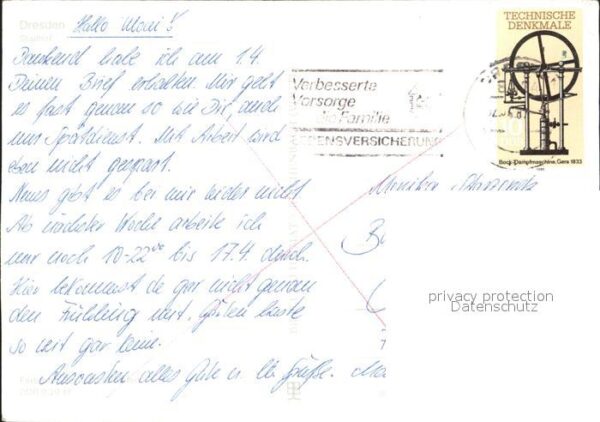 Dresden
Hallo
Dankend habe ich am 1.4.
Deinen Brief erhalten. Mir geht
es fast genau so wie Dir, auch
nur Spätdienst. Mit Arbeit wird
eben nicht gespart.
Neues gibt es bei mir leider nicht
Ab nächster Woche arbeite ich
nur noch 10-22 00 bis 17.4. durch.
Hier bekommst du gar nicht genau
den Frühling mit. Gärten
so weit gar keine.
Ansonsten alles Gute u. lb Grüße.
TECHNISCHE
DENKMALE
Bock-Dampfmaschine, Gera 1833
Verbesserte
Vorsorge
die Familie
LEBENSVERSICHERUNG
privacy protection
Datenschutz